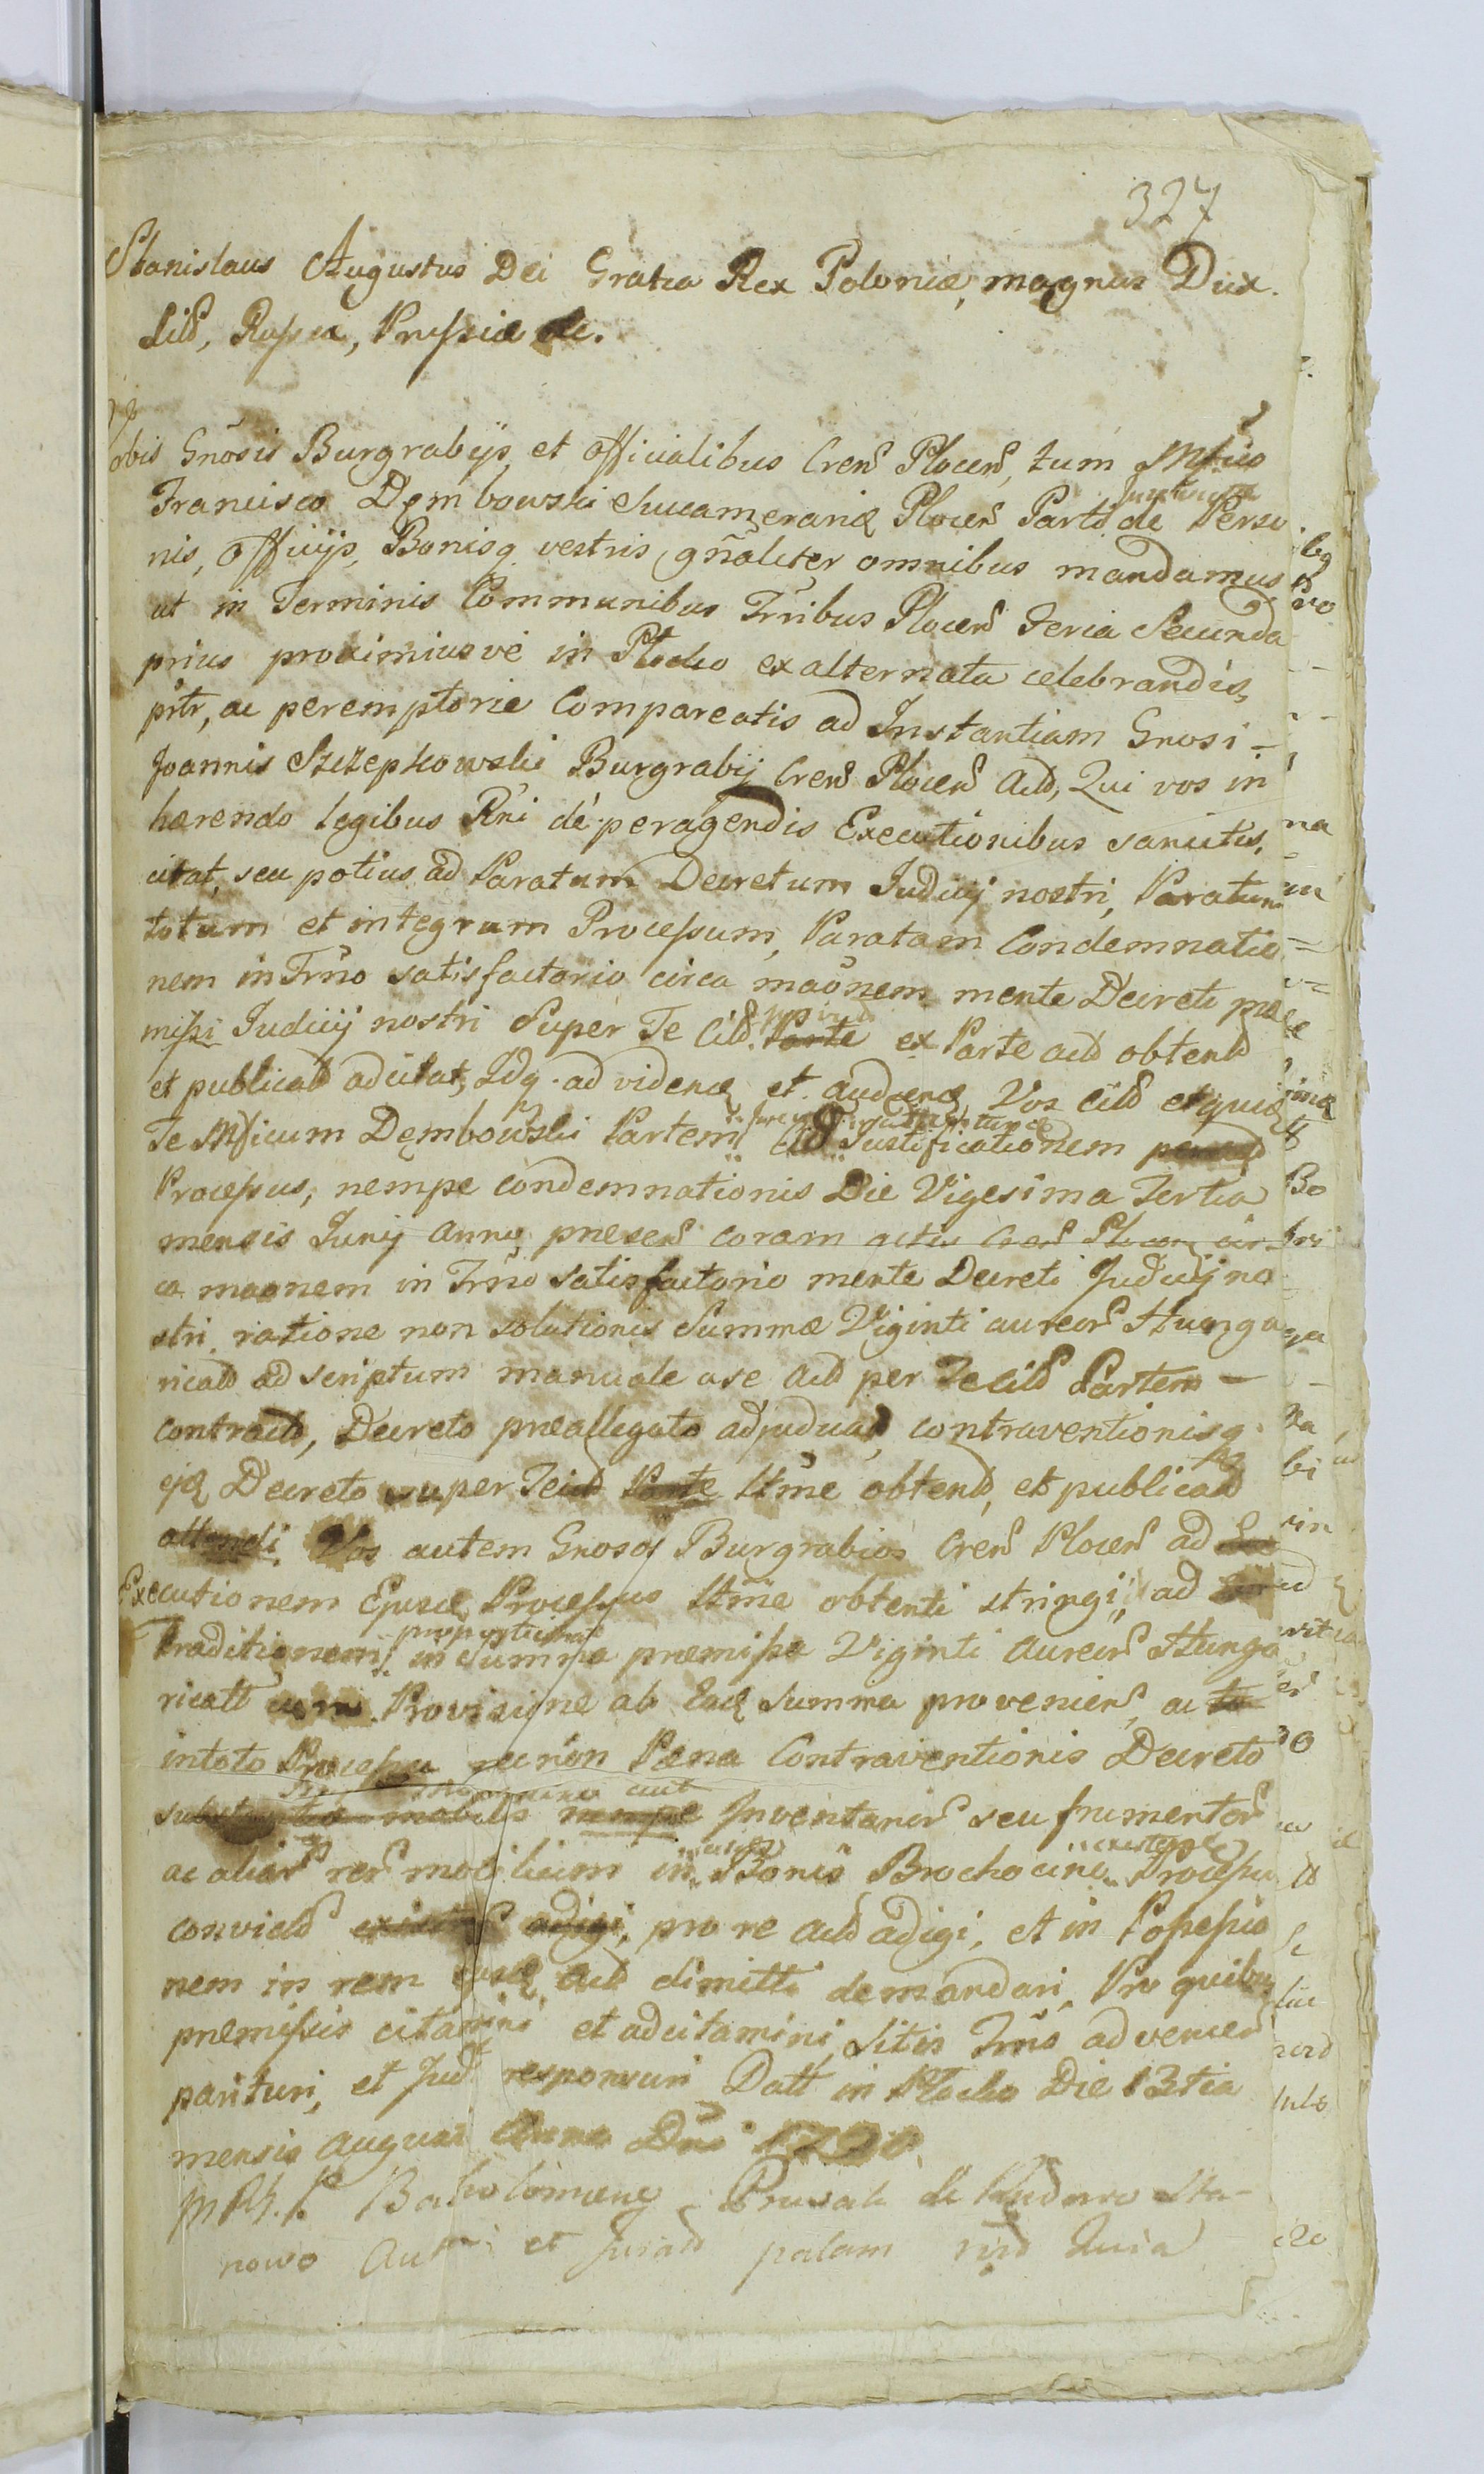 327
Stanislaus Augustus Dei Gratia Rex Poloniæ, magnus Dux
Lith, Russiæ, Prussiæ &c.
Vobis Gnosis Burgrabijs et Officialibus Cren Plocen, tum Mfico
Francisco Dembowski Succamerariæ Plocen Parti de Perso
nis, Officijs, Bonisq vestris gnaliter omnibus mandamus
ut in Terminis Communibus Trribus Plocen Feria Secunda
prius proximiusve in Plocko ex alternata celebrandis,
prtr, ac peremptorie Compareatis ad Instantiam Gnosi -
Joannis Szczepkowski Burgrabij Cren Plocen Act, Qui vos in
hærendo legibus Rni de peragendis Executionibus sancitis,
citat, seu potius ad Paratum Decretum Judicij nostri, Paratum
totum et integrum Processum, Paratam Condemnatio
nem in Trno satisfactorio circa maonem mente Decreti præ
missi Judicij nostri Super Te Citt Parte ex Parte act obtent
et publicat adcitat, Idq. ad videnq et audienq Vos citt
Te Mficum Dembowski Partem Citt Justificationem
Processus, nempe condemnationis Die Vigesima Tertia
mensis Junij anny præsen coram actis Cren Plocen cir
ca maonem in Trno Satisfactorio mente Decreti Judicij no
stri ratione non solutionis Summæ Viginti aureor Hunga
ricall ad scriptum manuale ase act per Te citt Partem -
contract, Decreto præallegato adjudicat, contraventionisq
ejq Decreto super Te citt Parte ltme obtent, et publicat
attendi Vos autem Gnosos Burgrabios Cren Plocen ad
Executionem Ejusq Processus ltme obtenti stringi, ad
Traditionem in Summa præmissa Viginti Aureor Hunga
ricall cum Provisione ab Eaq Summa provenien, ac
in toto Processu necnon Pæna Contraventionis Decreto
mobilis nempe Inventarior seu frumentor
ac alior rer mobilium in Bonis Brochocine Processu
convict adigi, pro re act adigi, et in Possessio
nem in rem ejusq Act dimitti demandari, Pro quibus
præmissis citamini et adcitamini, Sitis Trno advenien
parituri, et Jud responsuri Datt in Plocko Die 13tia
mensis Augusti Anno Dni 1790
Bartolomeus Prusak
nowo et Jurat palam